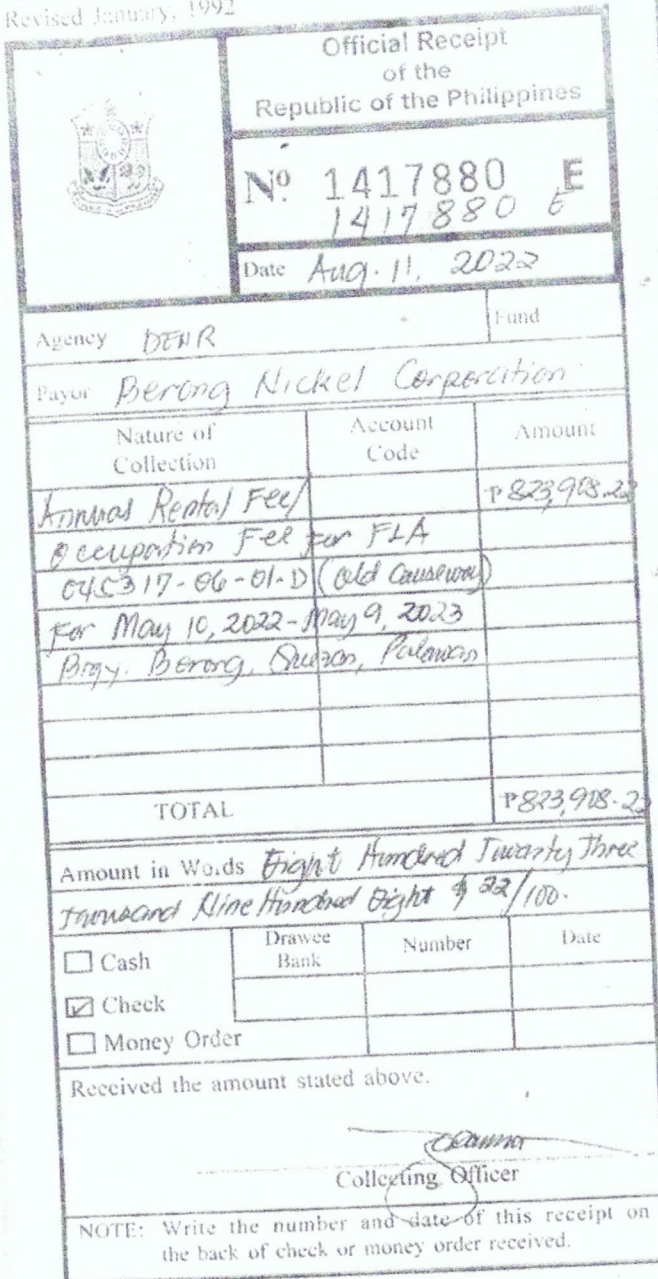 Revised January, 1992
Official Receipt
of the
Republic of the Philippines
Nº 1417880 E
1417880 E
Date Aug. 11, 2022
Agency DENR
Fund
Payor Berong Nickel Corporation
Nature of Collection Account Code Amount
Annual Rental Fee/ ₱823,908.22
Occupation Fee for FLA
045317-06-01-D (Old Causeway)
For May 10, 2022-May 9, 2023
Brgy. Berong, Quezon, Palawan
TOTAL ₱823,908.22
Amount in Words Eight Hundred Twenty Three
Thousand Nine Hundred Eight & 22/100.
Cash Drawee Bank Number Date
Check
Money Order
Received the amount stated above.
Collecting Officer
NOTE: Write the number and date of this receipt on
the back of check or money order received.